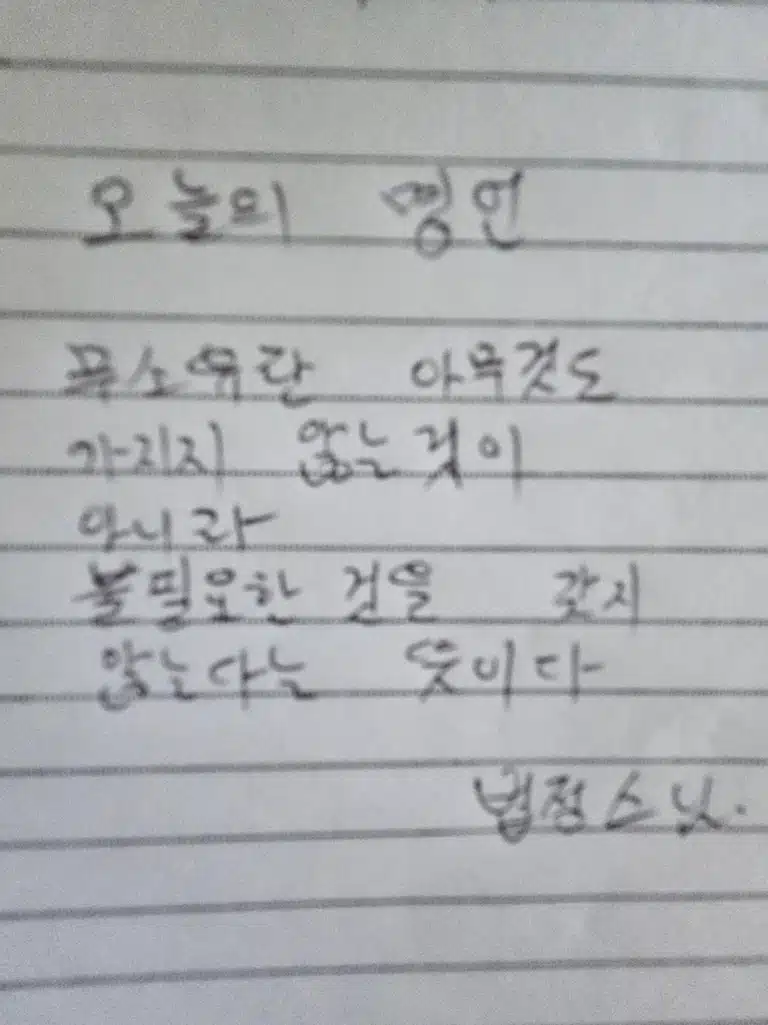 오늘의 명언
무소유란 아무것도
가지지 않는것이
아니라
불필요한 것을 갖지
않는다는 뜻이다
법정스님.